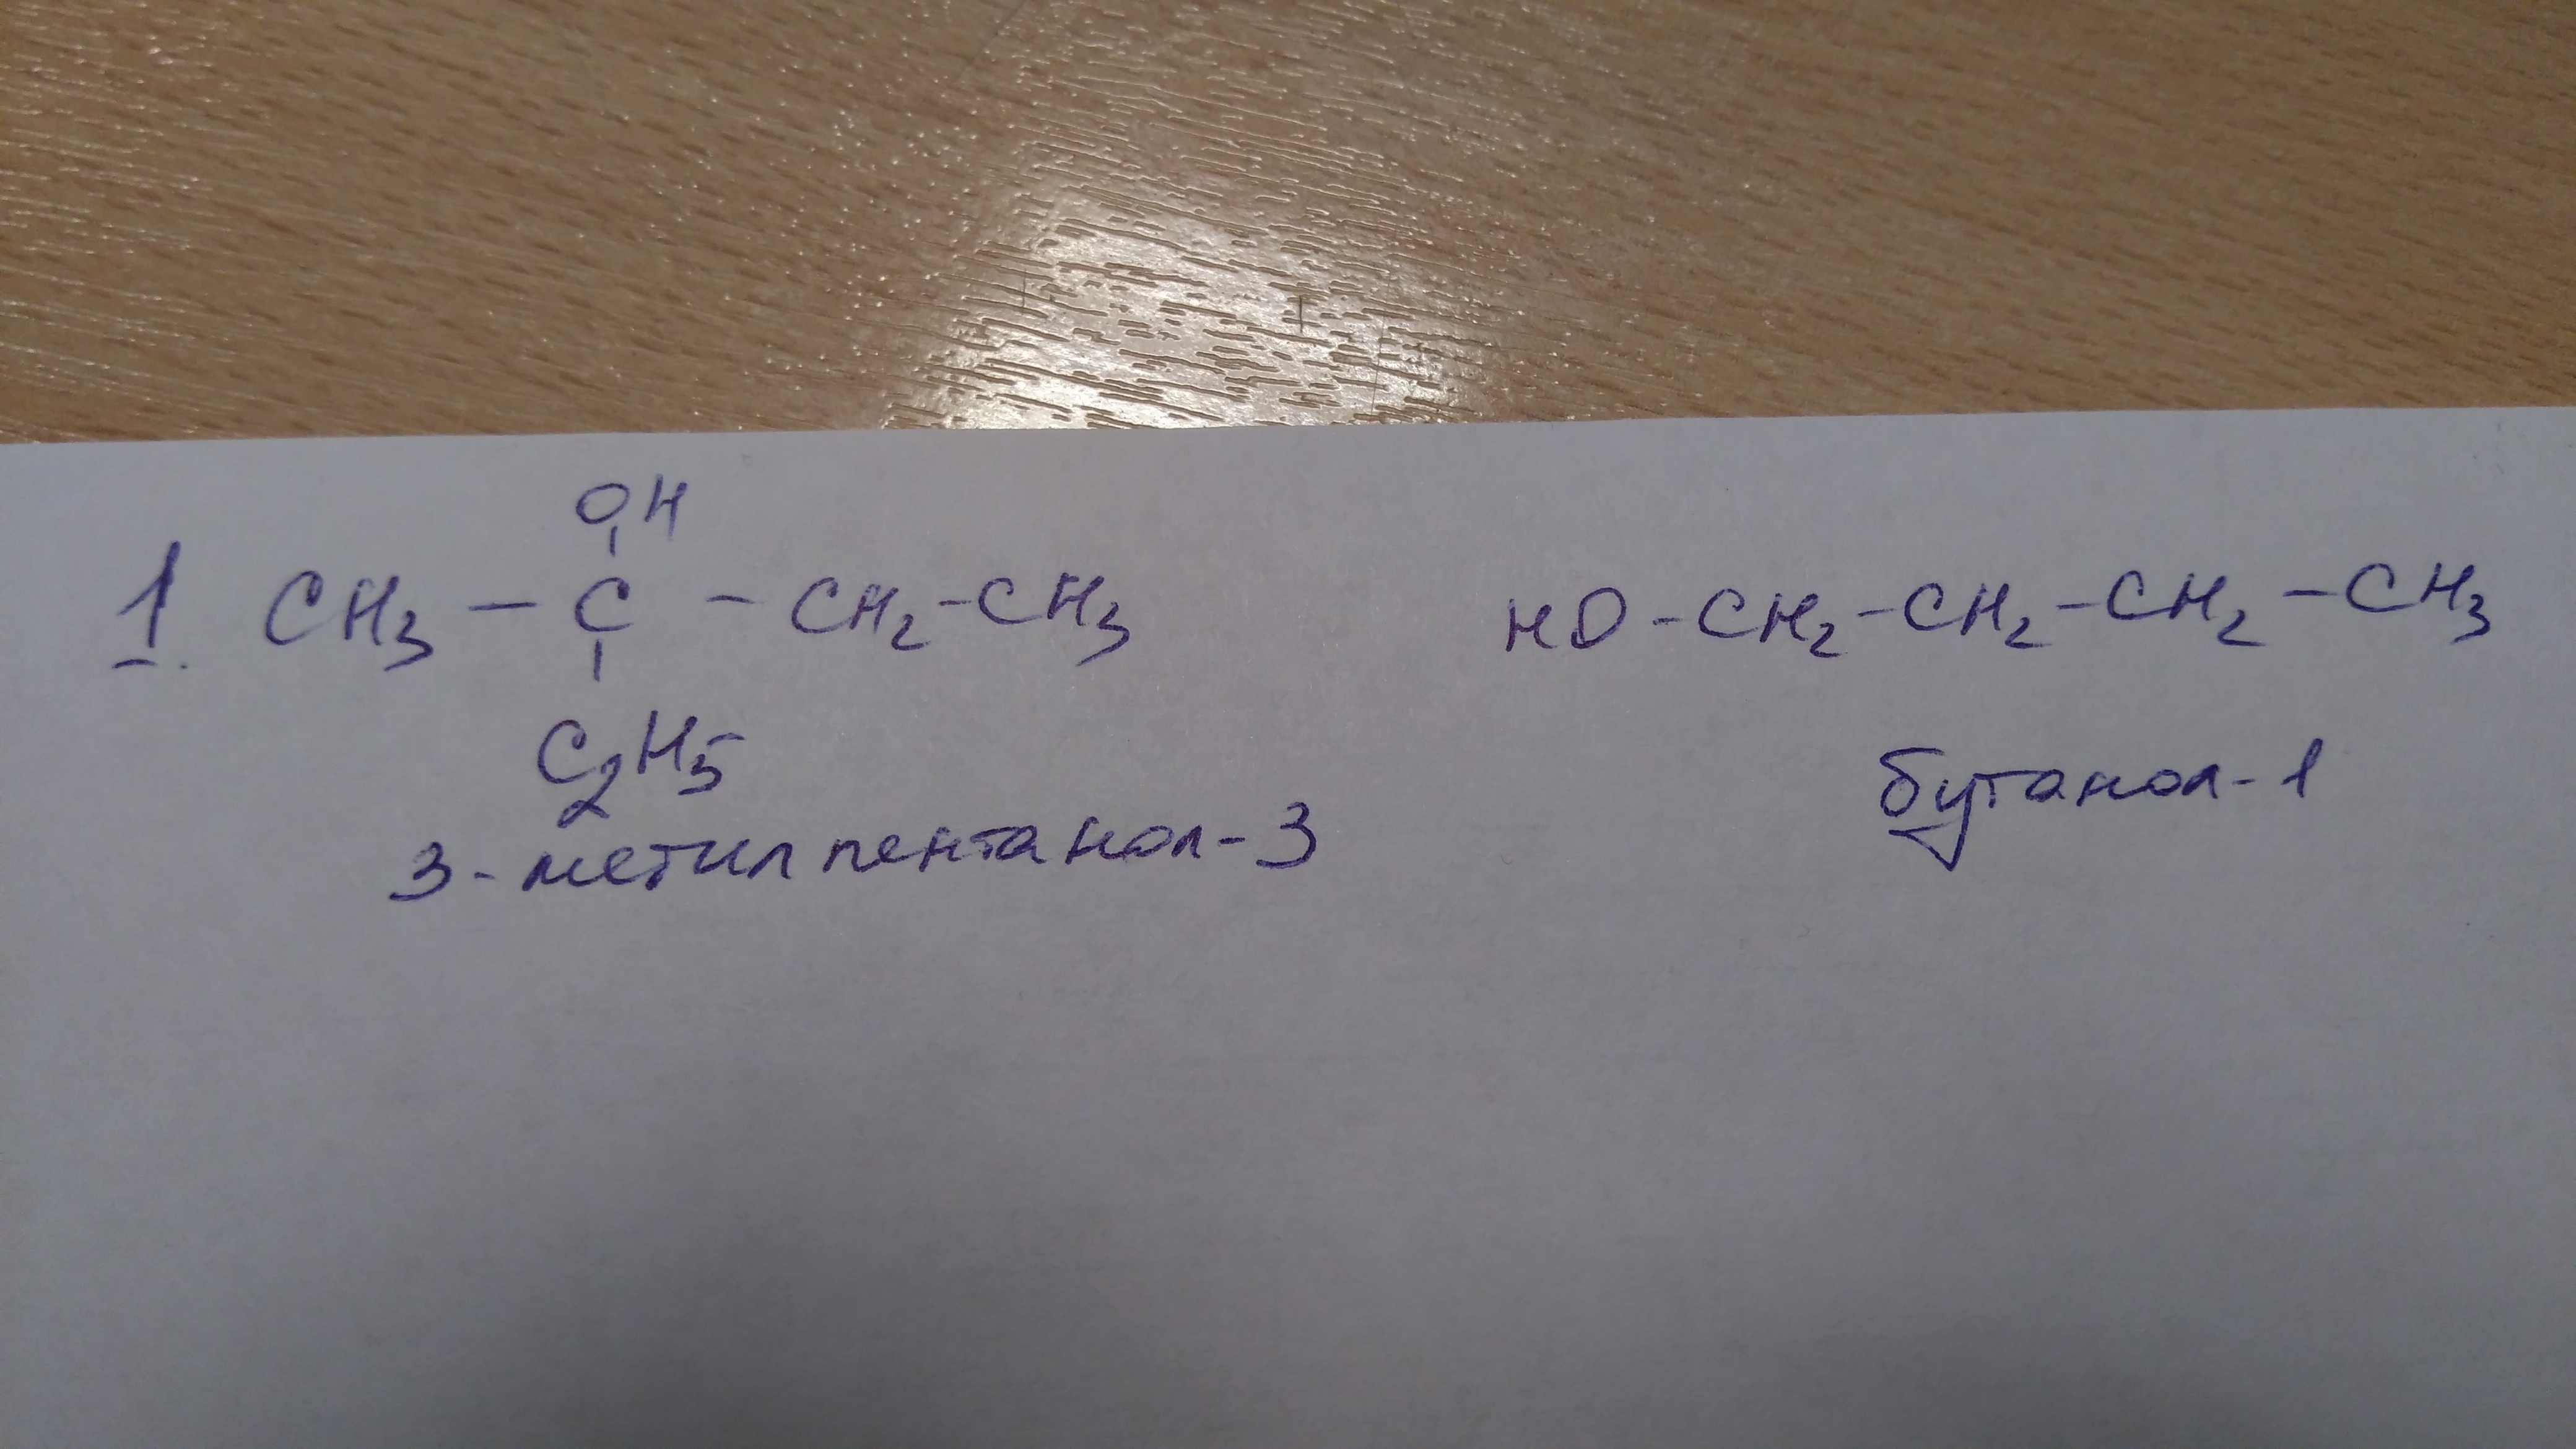 OH
1. CH3 – C – CH2 – CH3
C2H5
3-метилпентанол-3
HO – CH2 – CH2 – CH2 – CH3
бутанол-1